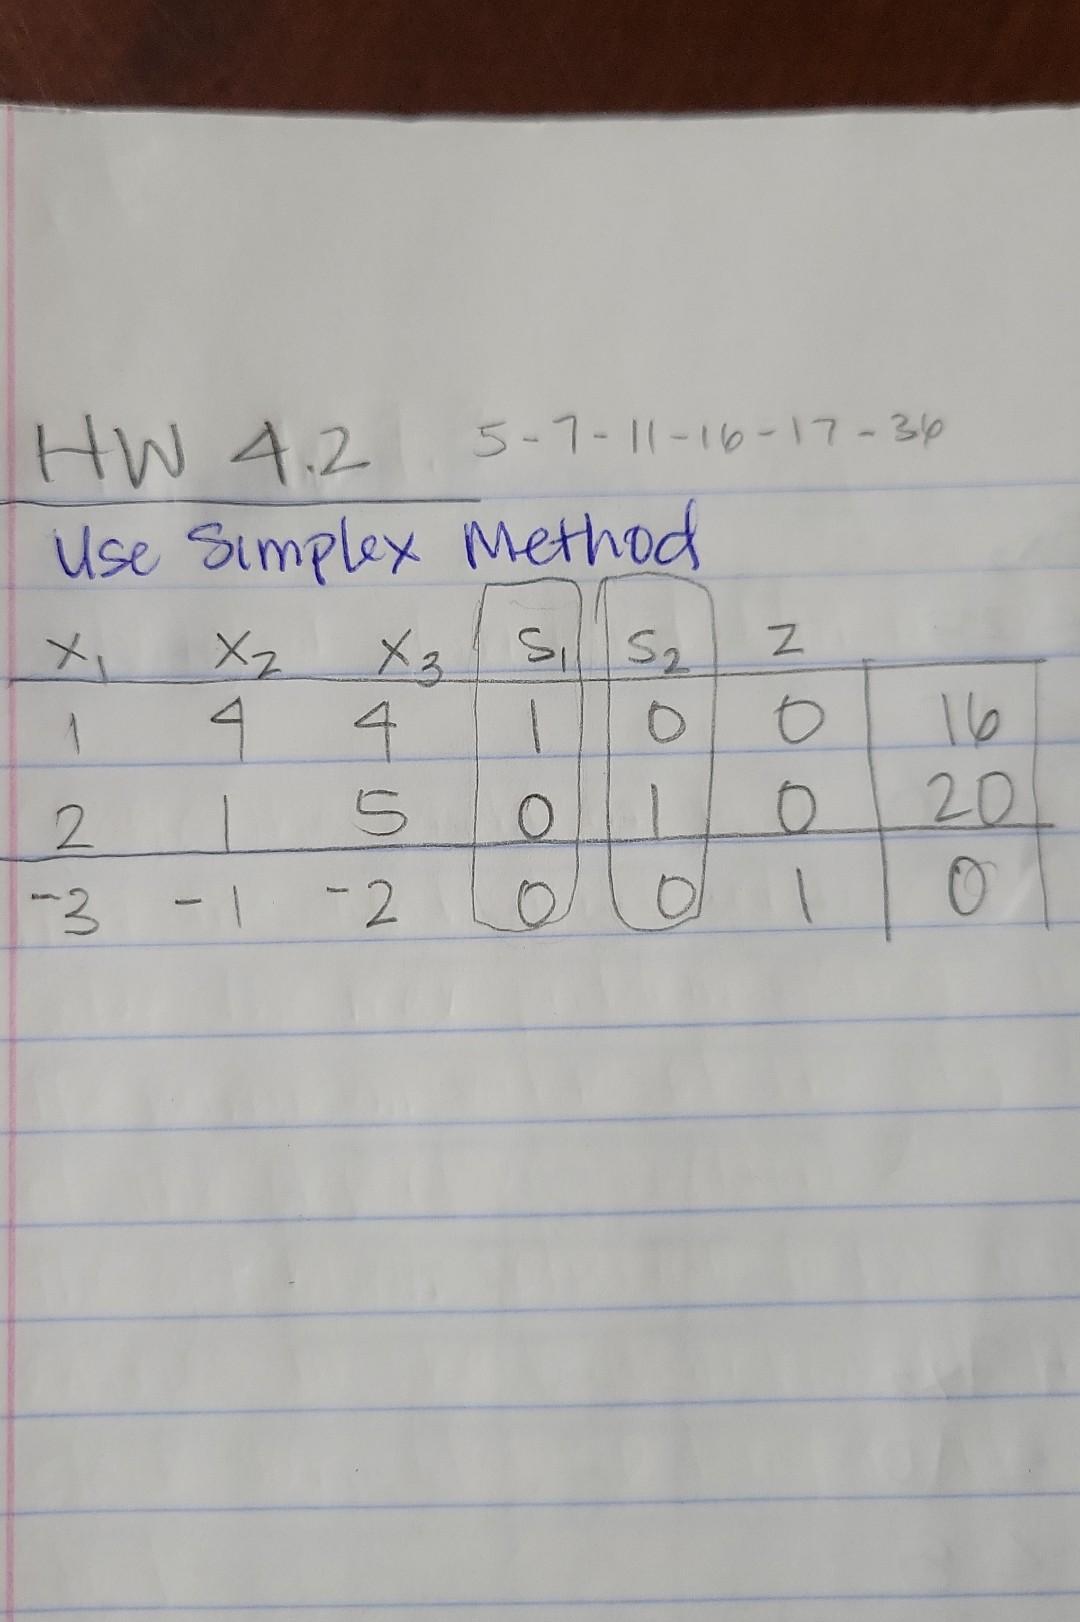 HW 4.2 5-7-11-16-17-36
Use Simplex Method
x₁ x₂ x₃ s₁ s₂ z
1 4 4 1 0 0 16
2 1 5 0 1 0 20
-3 -1 -2 0 0 1 0